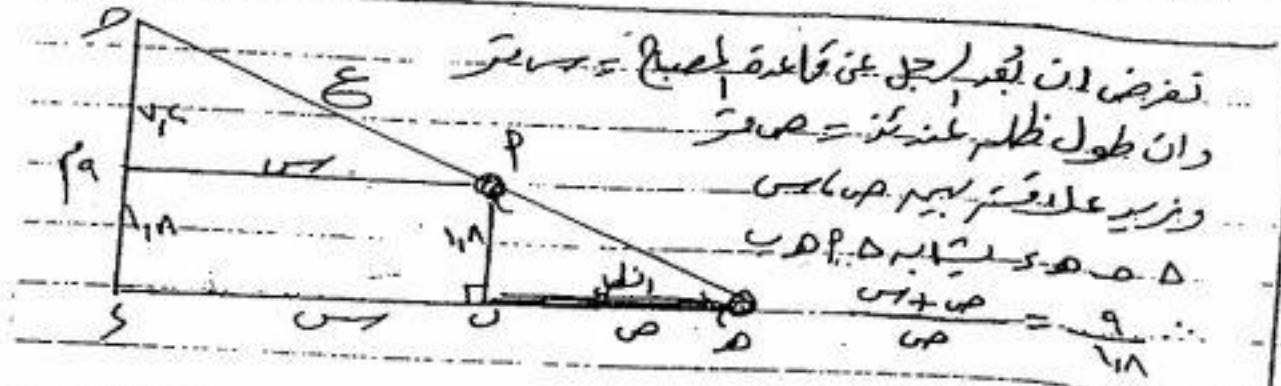 نفرض ان بُعد الرجل عن قاعدة المصباح = س متر
وان طول ظله عندئذ = ص متر
ونريد علاقة بين ص ، س
Δ حـ هـ ء يشابه Δ ٩ هـ ب
∴ ٩ / ١,٨ = (ص + س) / ص
حـ
ع
٧,٢
٩م
س
٩
١,٨
١,٨
الظل
ء
س
ب
ص
هـ